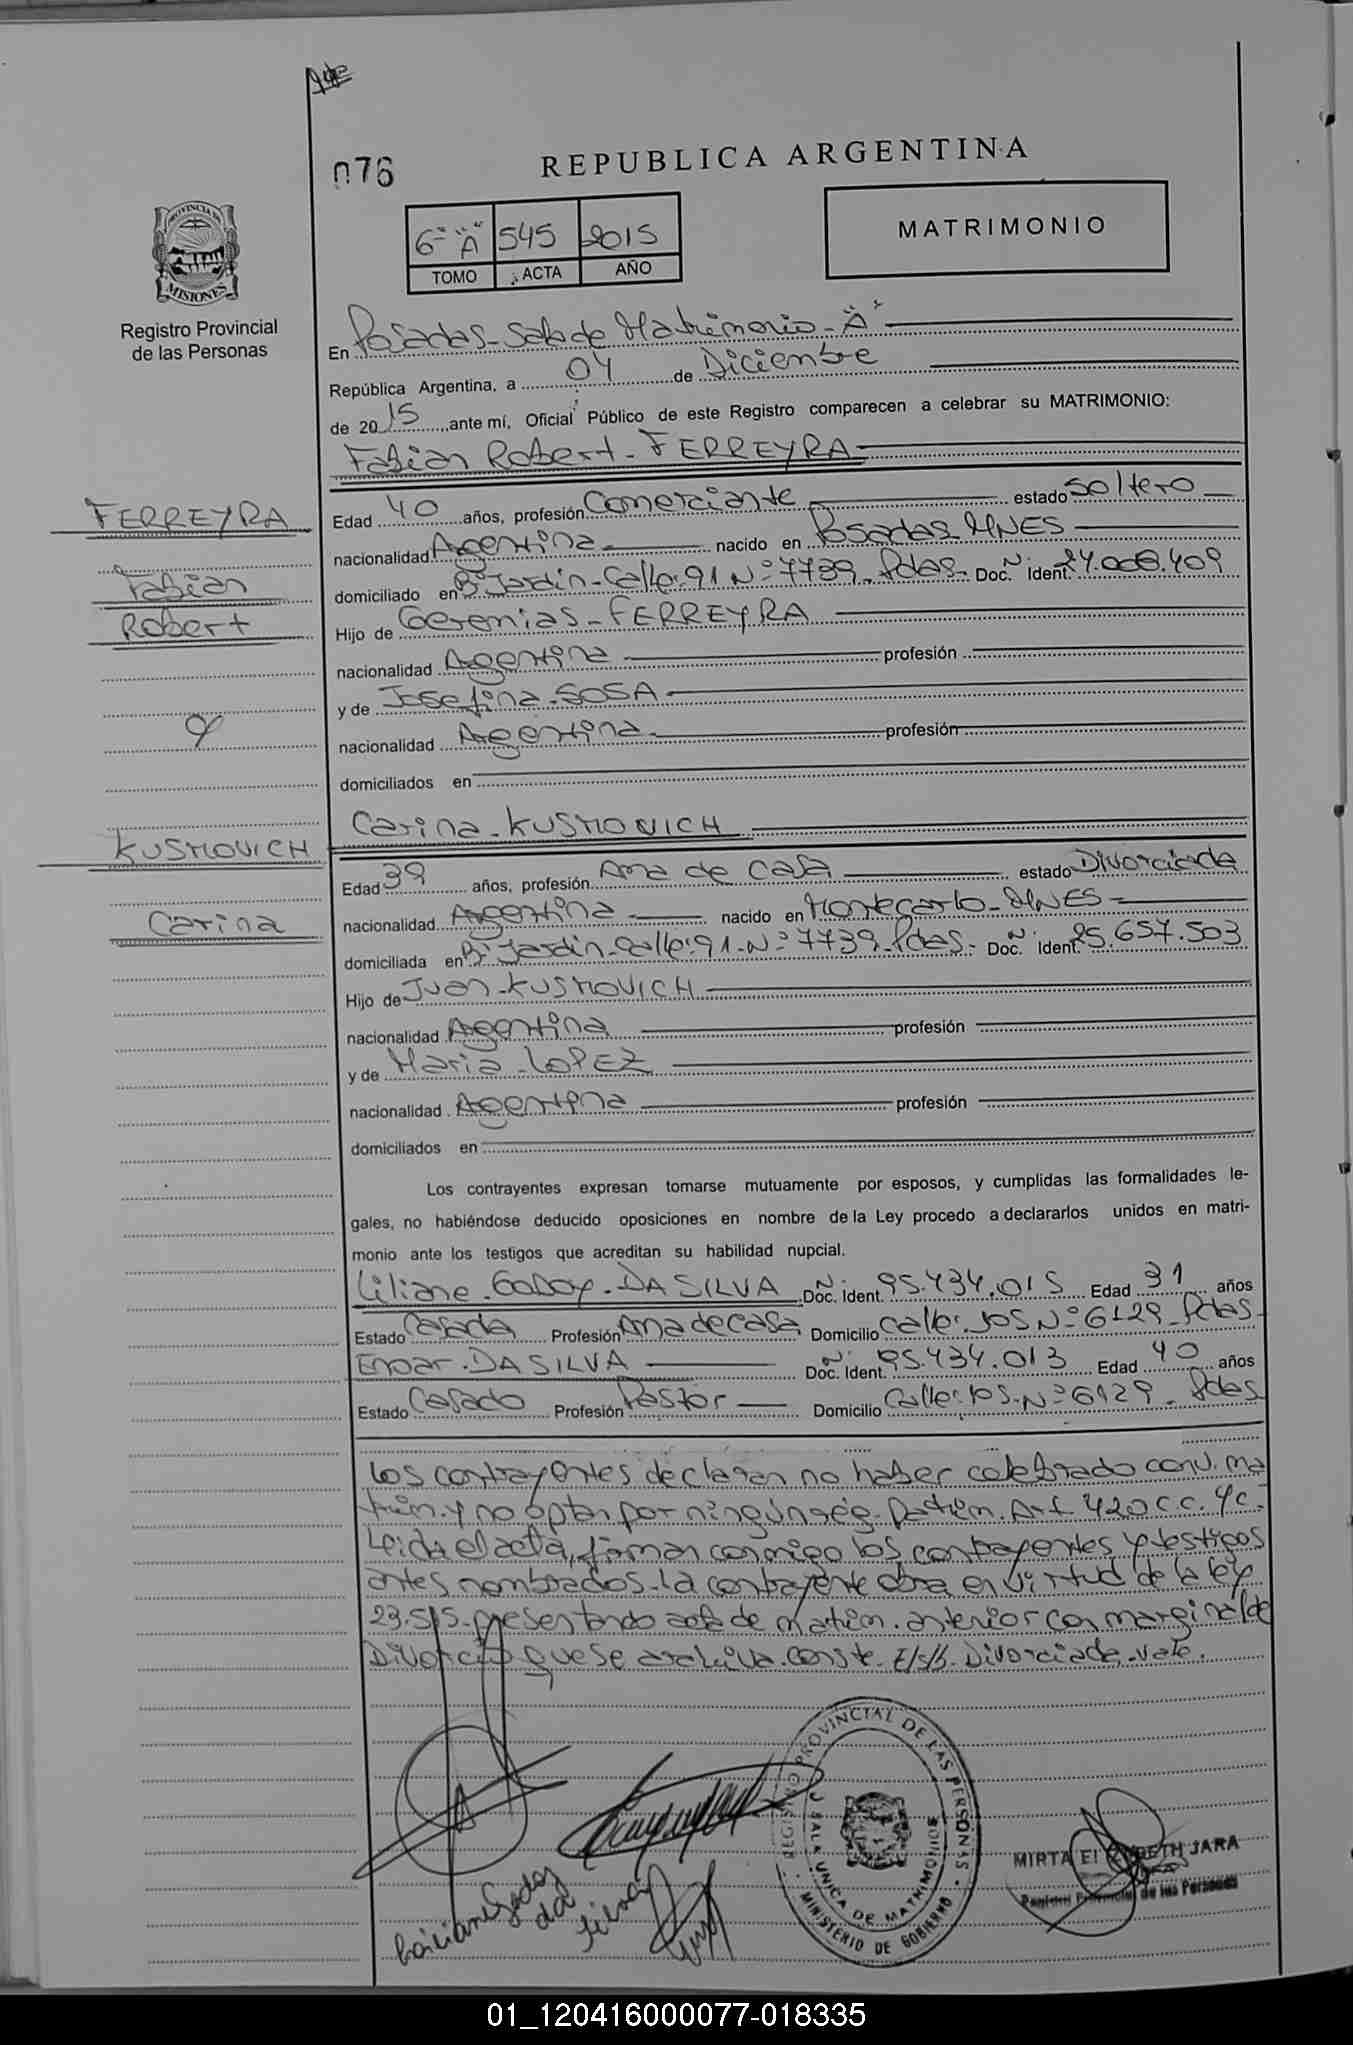 076
REPUBLICA ARGENTINA
6º "A" 545 2015
TOMO ACTA AÑO
MATRIMONIO
PROVINCIA DE
MISIONES
Registro Provincial
de las Personas
En Posadas - Sala de Matrimonio - "A"
República Argentina, a 04 de Diciembre
de 2015, ante mí, Oficial Público de este Registro comparecen a celebrar su MATRIMONIO:
Fabian Robert - FERREYRA
FERREYRA
Fabian
Robert
Edad 40 años, profesión Comerciante estado Soltero
nacionalidad Argentina nacido en Posadas MNES
domiciliado en Bº Jardin - Calle: 91 Nº 7739 - Pdas - Doc. Nº Ident. 24.008.409
Hijo de Geremias - FERREYRA
nacionalidad Argentina profesión
y de Josefina - SOSA
nacionalidad Argentina profesión
domiciliados en
Carina - KUSMOVICH
KUSMOVICH
Carina
Edad 39 años, profesión Ama de Casa estado Divorciada
nacionalidad Argentina nacido en Montecarlo - MNES
domiciliada en Bº Jardin - Calle: 91 - Nº 7739 - Pdas - Doc. Nº Ident. 25.657.503
Hijo de Juan - KUSMOVICH
nacionalidad Argentina profesión
y de Maria - LOPEZ
nacionalidad Argentina profesión
domiciliados en
Los contrayentes expresan tomarse mutuamente por esposos, y cumplidas las formalidades le-
gales, no habiéndose deducido oposiciones en nombre de la Ley procedo a declararlos unidos en matri-
monio ante los testigos que acreditan su habilidad nupcial.
Liliane - GODOY - DA SILVA Doc. Nº Ident. 95.434.015 Edad 31 años
Estado Casada Profesión Ama de casa Domicilio Calle: 105 Nº 6129 - Pdas
DA SILVA Doc. Nº Ident. 95.434.013 Edad 40 años
Estado Casado Profesión Pastor Domicilio Calle: 105 - Nº 6129 - Pdas
Los contrayentes declaran no haber celebrado conv. ma
trim. y no optan por ningún reg. patrim. Art 420 C.C. y C.-
Leida el acta, firman conmigo los contrayentes y testigos
antes nombrados - La contrayente obra en virtud de la ley
23.515 - presentando acta de matrim. anterior con marginal de
Divorcio que se archiva. conste - E/s/b. Divorciada - vale.
REGISTRO PROVINCIAL DE LAS PERSONAS
SALA UNICA DE MATRIMONIOS
MINISTERIO DE GOBIERNO
MIRTA JARA
Registro Provincial de las Personas
01_120416000077-018335